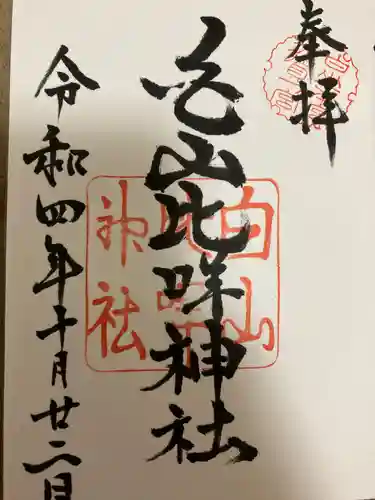 奉拝
白山比咩神社
白山比咩神社
令和四年十月廿二日